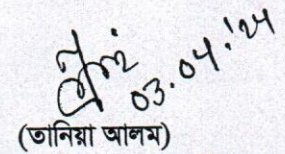 03.04.'24
(তানিয়া আলম)